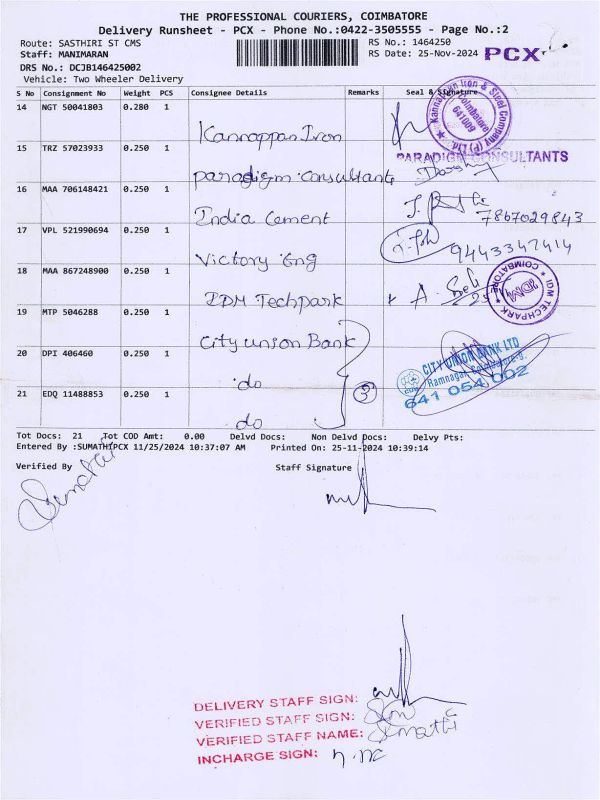 THE PROFESSIONAL COURIERS, COIMBATORE
Delivery Runsheet - PCX - Phone No.:0422-3505555 - Page No.:2
Route: SASTHIRI ST CMS
RS No.: 1464250
Staff: MANIMARAN
RS Date: 25-Nov-2024 PCX
DRS No.: DCJB146425002
Vehicle: Two Wheeler Delivery
S No Consignment No Weight PCS Consignee Details Remarks Seal & Signature
14 NGT 50041803 0.280 1 Kannappan Iron
Kannappan Iron & Steel Company (P) Ltd. Coimbatore 641009
15 TRZ 57023933 0.250 1 paradigm consultants
PARADIGM CONSULTANTS
16 MAA 706148421 0.250 1 India Cement
7867029843
17 VPL 521990694 0.250 1 Victory Eng
9443347414
18 MAA 867248900 0.250 1 IDM Techpark
IDM TECHPARK COIMBATORE IDM
19 MTP 5046288 0.250 1 City union Bank
CITY UNION BANK LTD
20 DPI 406460 0.250 1 do
Ramnagar, Coimbatore-9.
641 054 002
21 EDQ 11488853 0.250 1 do
3
Tot Docs: 21 Tot COD Amt: 0.00 Delvd Docs: Non Delvd Docs: Delvy Pts:
Entered By :SUMATHIPCX 11/25/2024 10:37:07 AM Printed On: 25-11-2024 10:39:14
Verified By Staff Signature
Sumathi
DELIVERY STAFF SIGN:
VERIFIED STAFF SIGN:
VERIFIED STAFF NAME: Sumathi
INCHARGE SIGN: